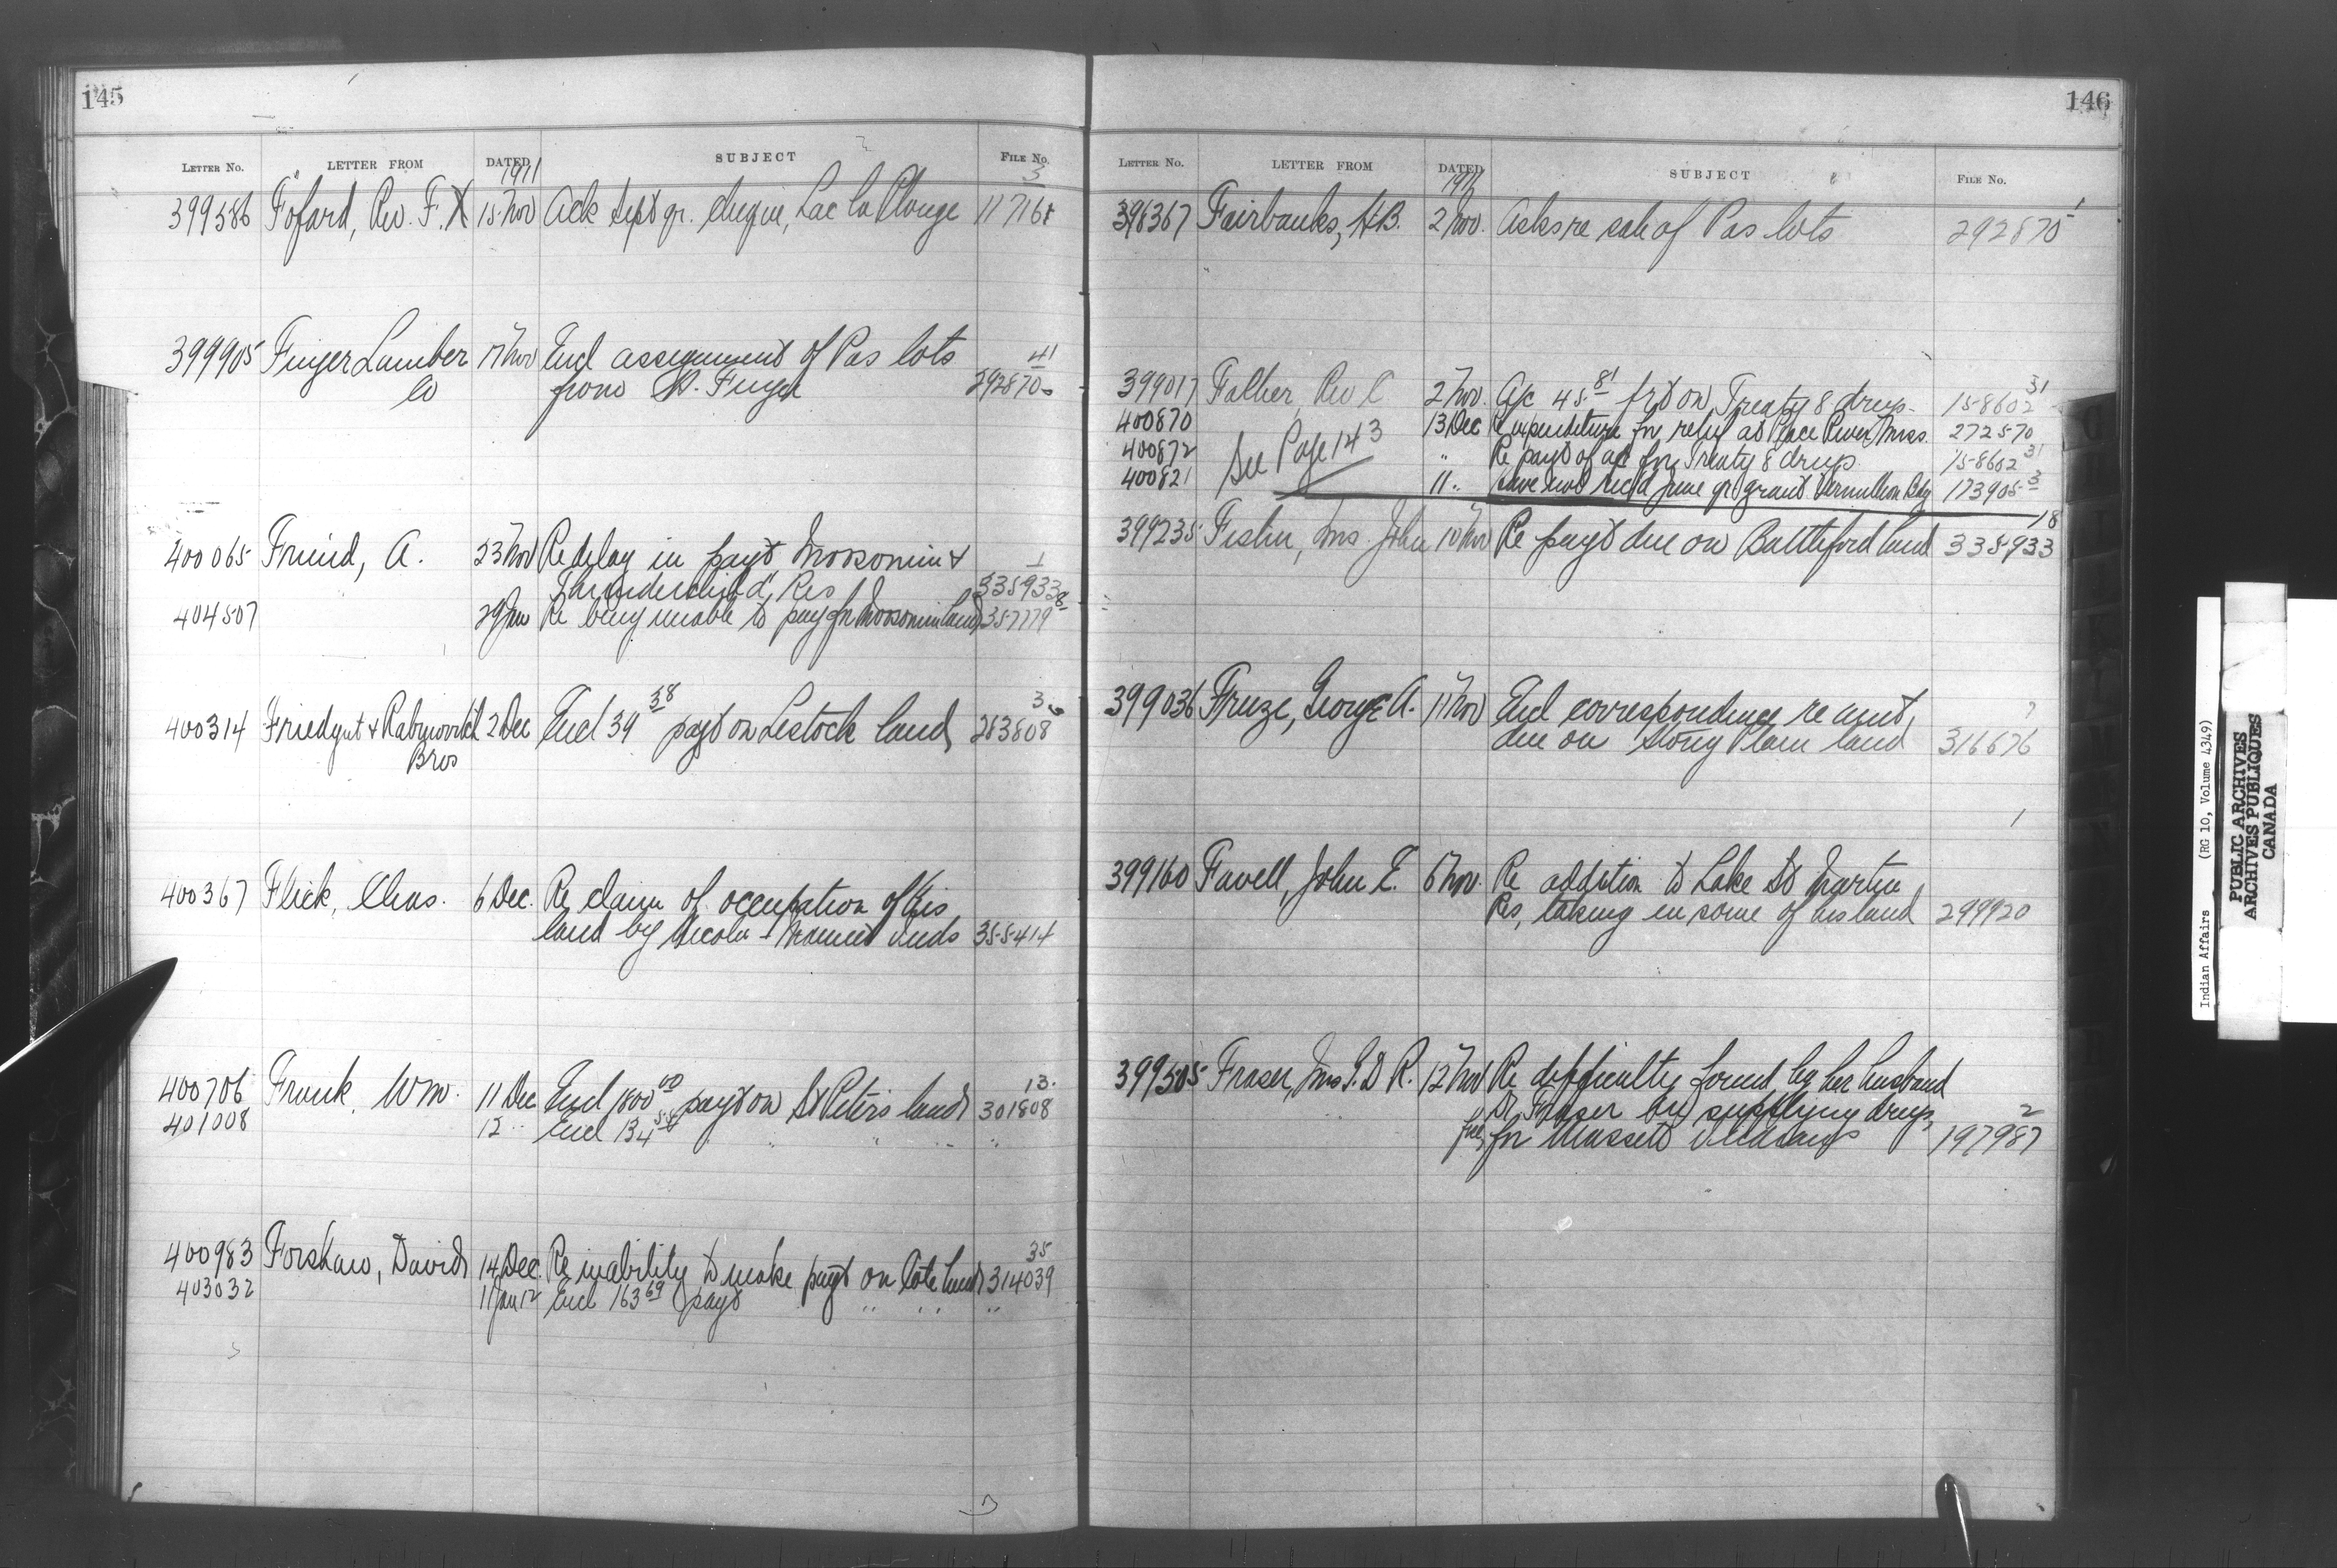 145
LETTER No. LETTER FROM DATED SUBJECT FILE No.
1911
3
399586 Fofard, Rev. F. X 15 Nov Ack Sept qr. cheque, Lac la Plonge 117168
399905 Finger Lumber 17 Nov Encl assignment of Pas lots 41
Co from H. Finger 292870
400065 Friend, A. 23 Nov Re delay in payt Moosomin & 1
Thunderchild Res 335933
404507 29 Jan Re being unable to pay for Moosomin land 357779 8
400314 Friedgut & Rabinovitch 2 Dec Encl 39 38 payt on Lestock land 3
Bros 283808
400367 Flick, Chas. 6 Dec. Re claim of occupation of his
land by Nicola - Inds 355414
400706 Frank, Wm. 11 Dec Encl 1800 00 payt on St Peters land 13.
301808
401008 12 " Encl 134 58 " " " "
400983 Forshaw, David 14 Dec. Re inability to make payt on Cote land 35
314039
403032 11 Jan 12 Encl 163 69 payt " " " "
146
LETTER No. LETTER FROM DATED SUBJECT FILE No.
1911
398367 Fairbanks, H B. 2 Nov. Asks re sale of Pas lots 1
292870
399017 Falher, Rev C 2 Nov. A/c 45. 81 frt on Treaty 8 drugs 31
158602
400870 13 Dec Re expenditure for relief at Peace River Miss. 272570
400872 See Page 143 " Re payt of a/c for Treaty 8 drugs 158602 31
400821 11 " Have not rec'd June qr grant Vermillion Bdg 173905 3
399235 Fisher, Mrs. John 10 Nov Re payt due on Battleford land 18
335933
399036 Freeze, George A. 11 Nov Encl correspondence re amt, 7
due on Stony Plain land 316676
1
399160 Favell, John E. 6 Nov. Re addition to Lake St Martin
Res, taking in some of his land 299920
399505 Fraser, Mrs J. D R. 12 Nov Re difficulty found by her husband
Dr Fraser by supplying drugs, 2
for Massett Indians 197987
Indian Affairs (RG 10, Volume 4349)
PUBLIC ARCHIVES
ARCHIVES PUBLIQUES
CANADA